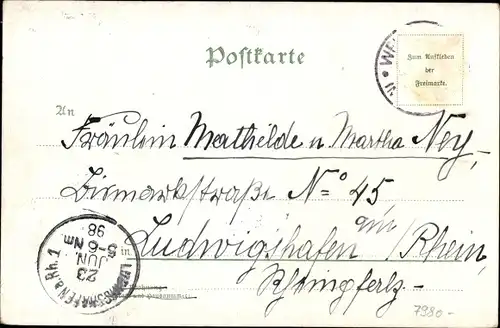 Postkarte
Zum Aufkleben
der
Freimarke.
An
Fräulein Mathilde u Martha Ney,
Bismarkstraße No 45
in
Ludwigshafen am /Rhein,
Rheinpfalz-
LUDWIGSHAFEN A. Rh. 1
23
JUN.
5-6 Nm.
98
7980-